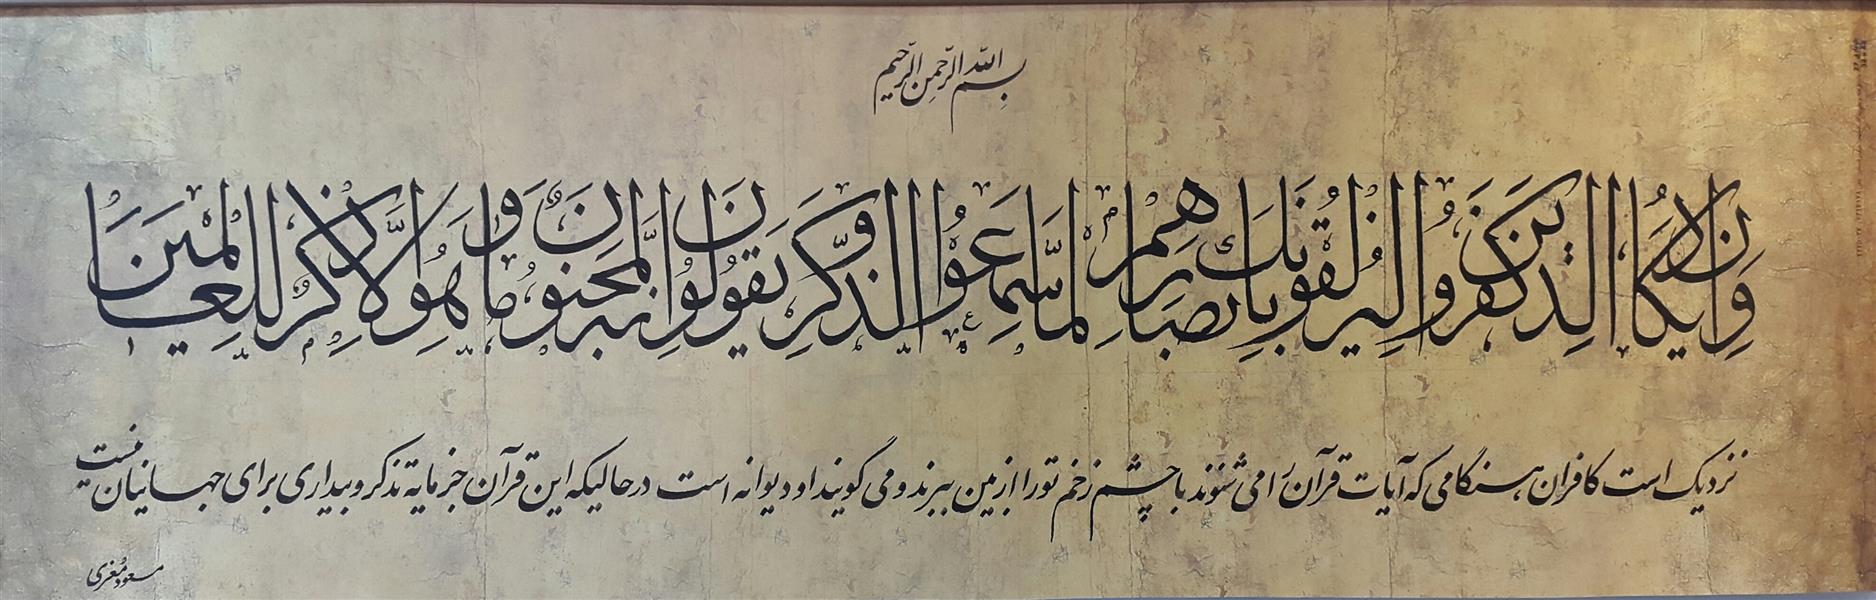 بسم الله الرّحمن الرّحیم
وَاِن یَکادُ الَّذینَ کَفَروا لَیُزلِقونَکَ بِاَبصارِهِم لَمّا سَمِعُوا الذِّکرَ وَ یَقولونَ اِنَّهُ لَمَجنونٌ وَ ما هُوَ اِلّا ذِکرٌ لِلعالَمینَ
نزدیک است کافران هنگامی که آیات قرآن را می شنوند با چشم زخم تو را از بین ببرند و می گویند او دیوانه است در حالیکه این قرآن جز مایه تذکر و بیداری برای جهانیان نیست
مسعود مغری